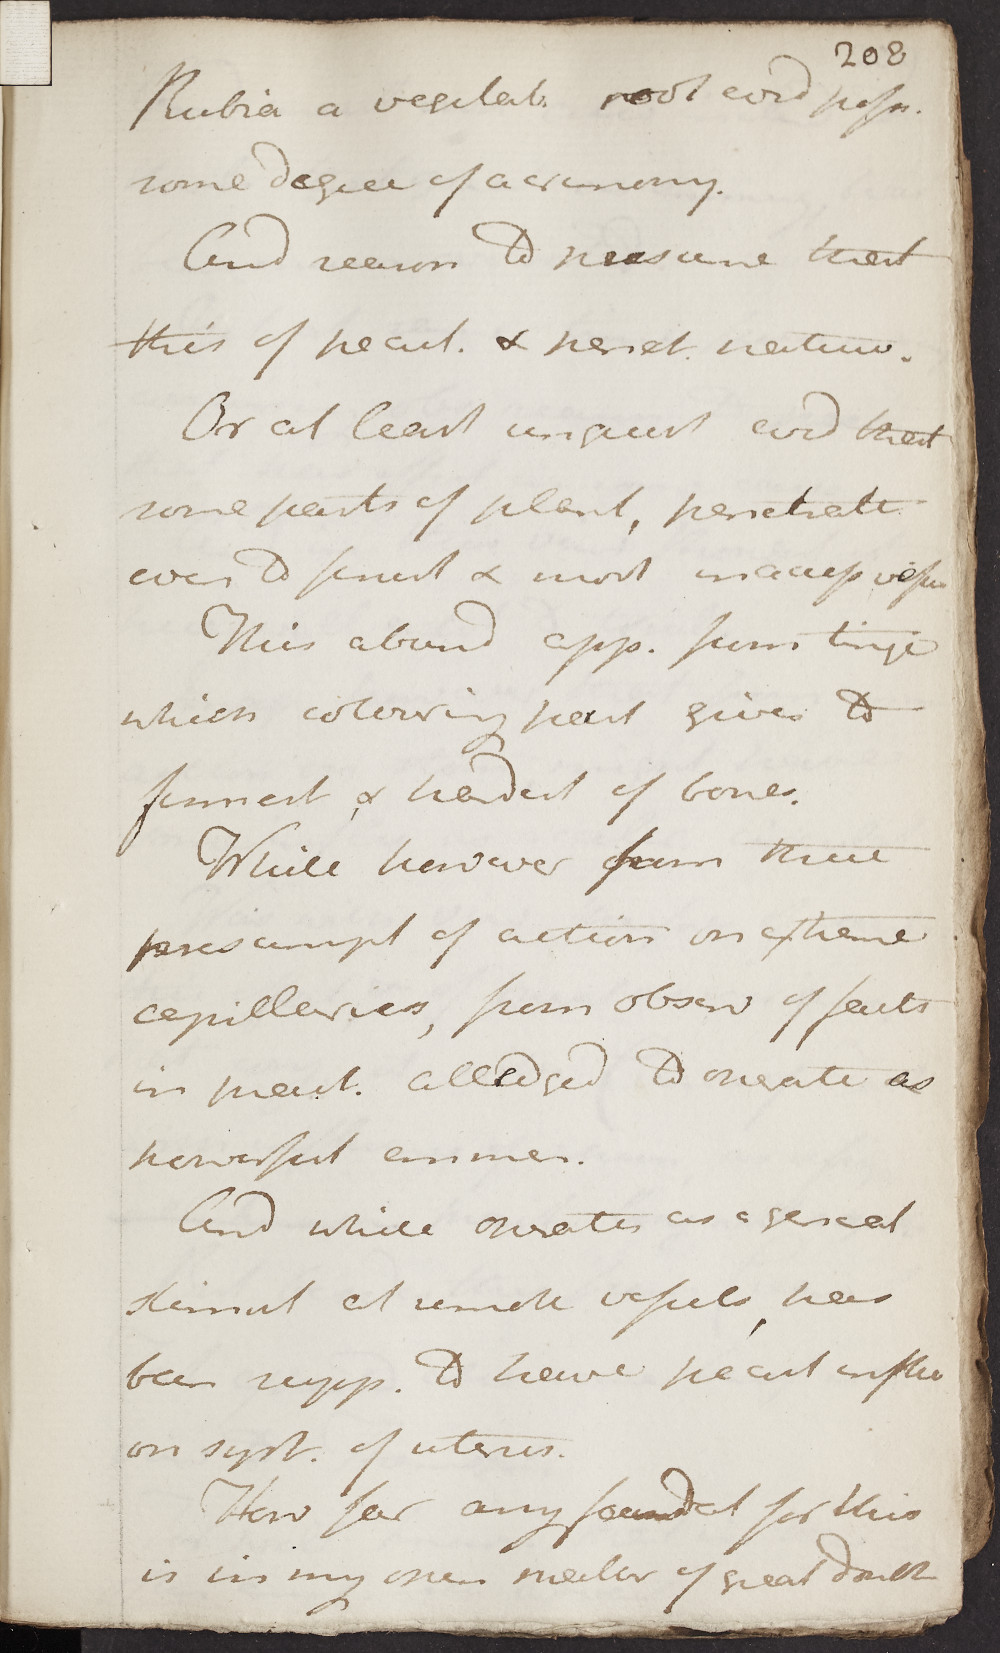 208
Rubia a vegetab. root evid poss.
some degree of acrimony.
And reason to presume that
this of pecul. & penet. nature.
Or at least unquest evid that
some parts of plant, penetrate
even to finest & most inaccess vessu
This abund app. from tinge
which colouring part gives to
firmest & hardest of bones.
While however from these
presumpt of action on extreme
capillaries, from observ of facts
in pract. alledged to operate as
powerful emmen.
And while operates as a general
stimul at remote vessels, has
been supp. to have pecul influ
on syst. of uterus.
How far any foundat for this
is in my opin matter of great doubt